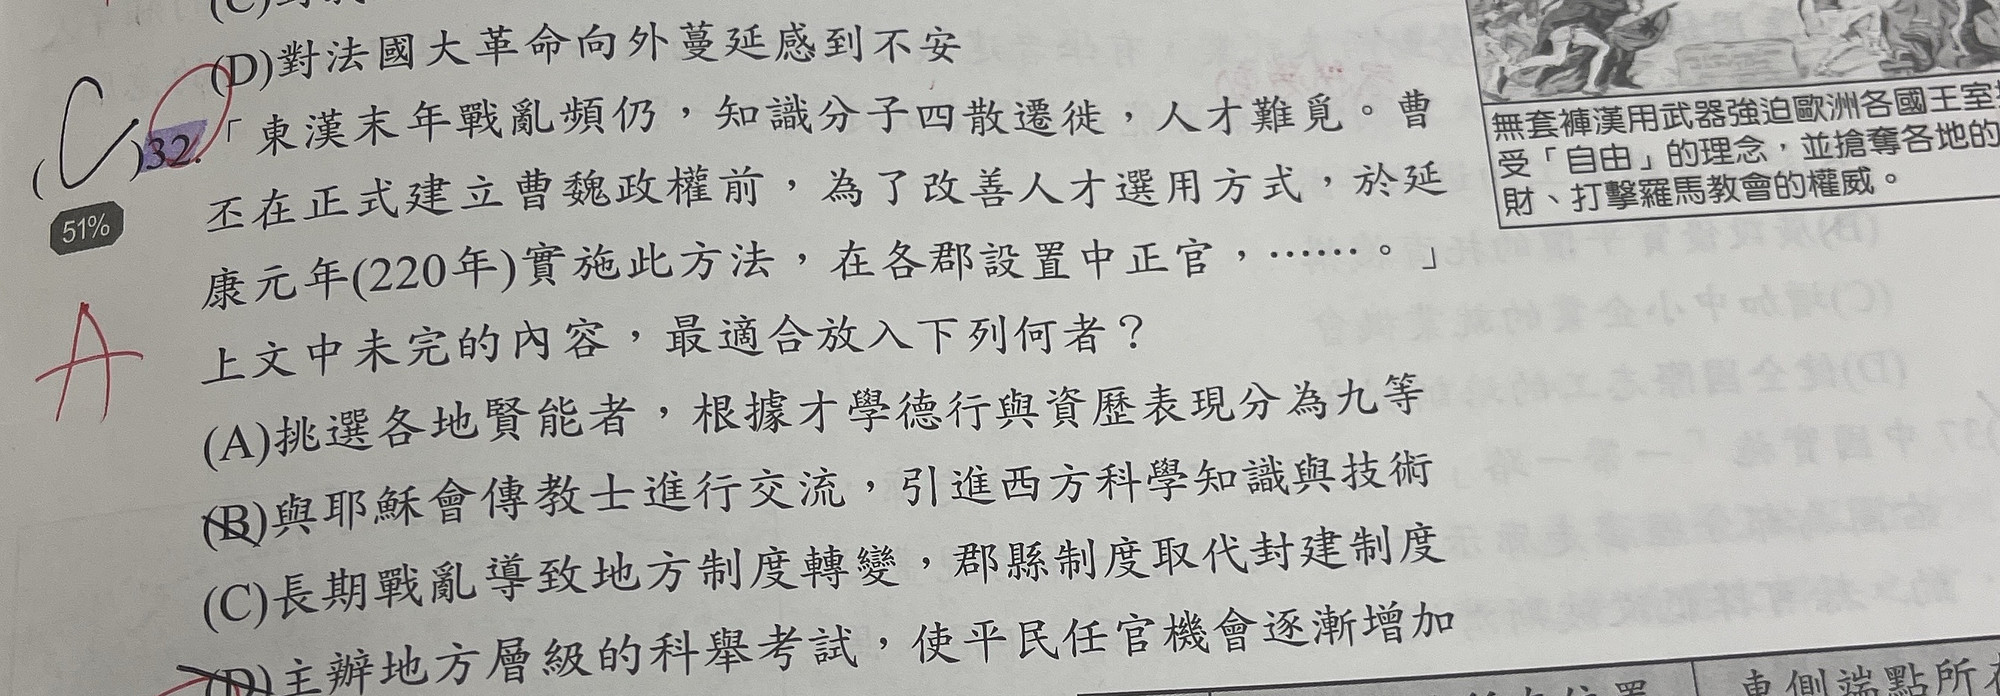 (D)對法國大革命向外蔓延感到不安
(C)32.「東漢末年戰亂頻仍，知識分子四散遷徙，人才難覓。曹
丕在正式建立曹魏政權前，為了改善人才選用方式，於延
51%
康元年(220年)實施此方法，在各郡設置中正官，……。」
上文中未完的內容，最適合放入下列何者？
A
(A)挑選各地賢能者，根據才學德行與資歷表現分為九等
(B)與耶穌會傳教士進行交流，引進西方科學知識與技術
(C)長期戰亂導致地方制度轉變，郡縣制度取代封建制度
(D)主辦地方層級的科舉考試，使平民任官機會逐漸增加
無套褲漢用武器強迫歐洲各國王室
受「自由」的理念，並搶奪各地的
財、打擊羅馬教會的權威。
東側端點所